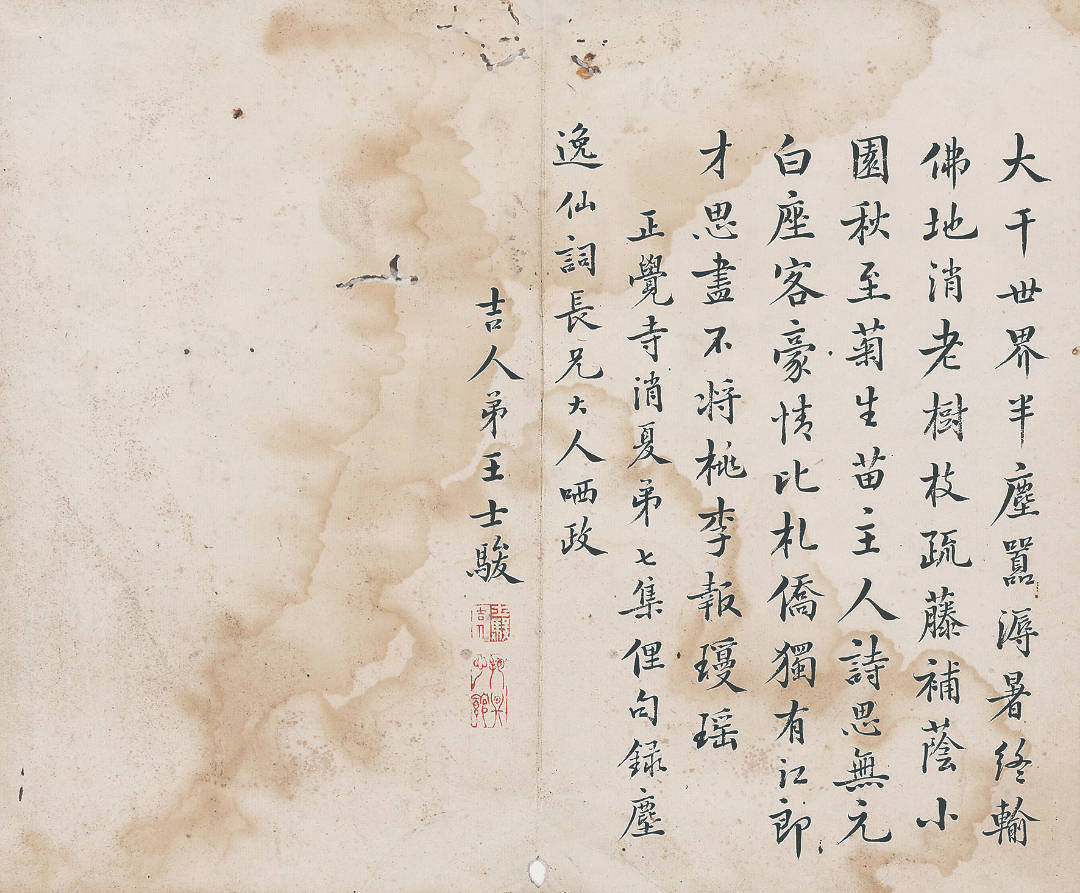 大千世界半塵囂溽暑終輸
佛地消老樹枝疏藤補蔭小
園秋至菊生苗主人詩思無元
白座客豪情比札僑獨有江郎
才思盡不將桃李報瓊瑤
正覺寺消夏弟七集俚句録塵
逸仙詞長兄大人哂政
吉人弟王士駿
士駿
吉人